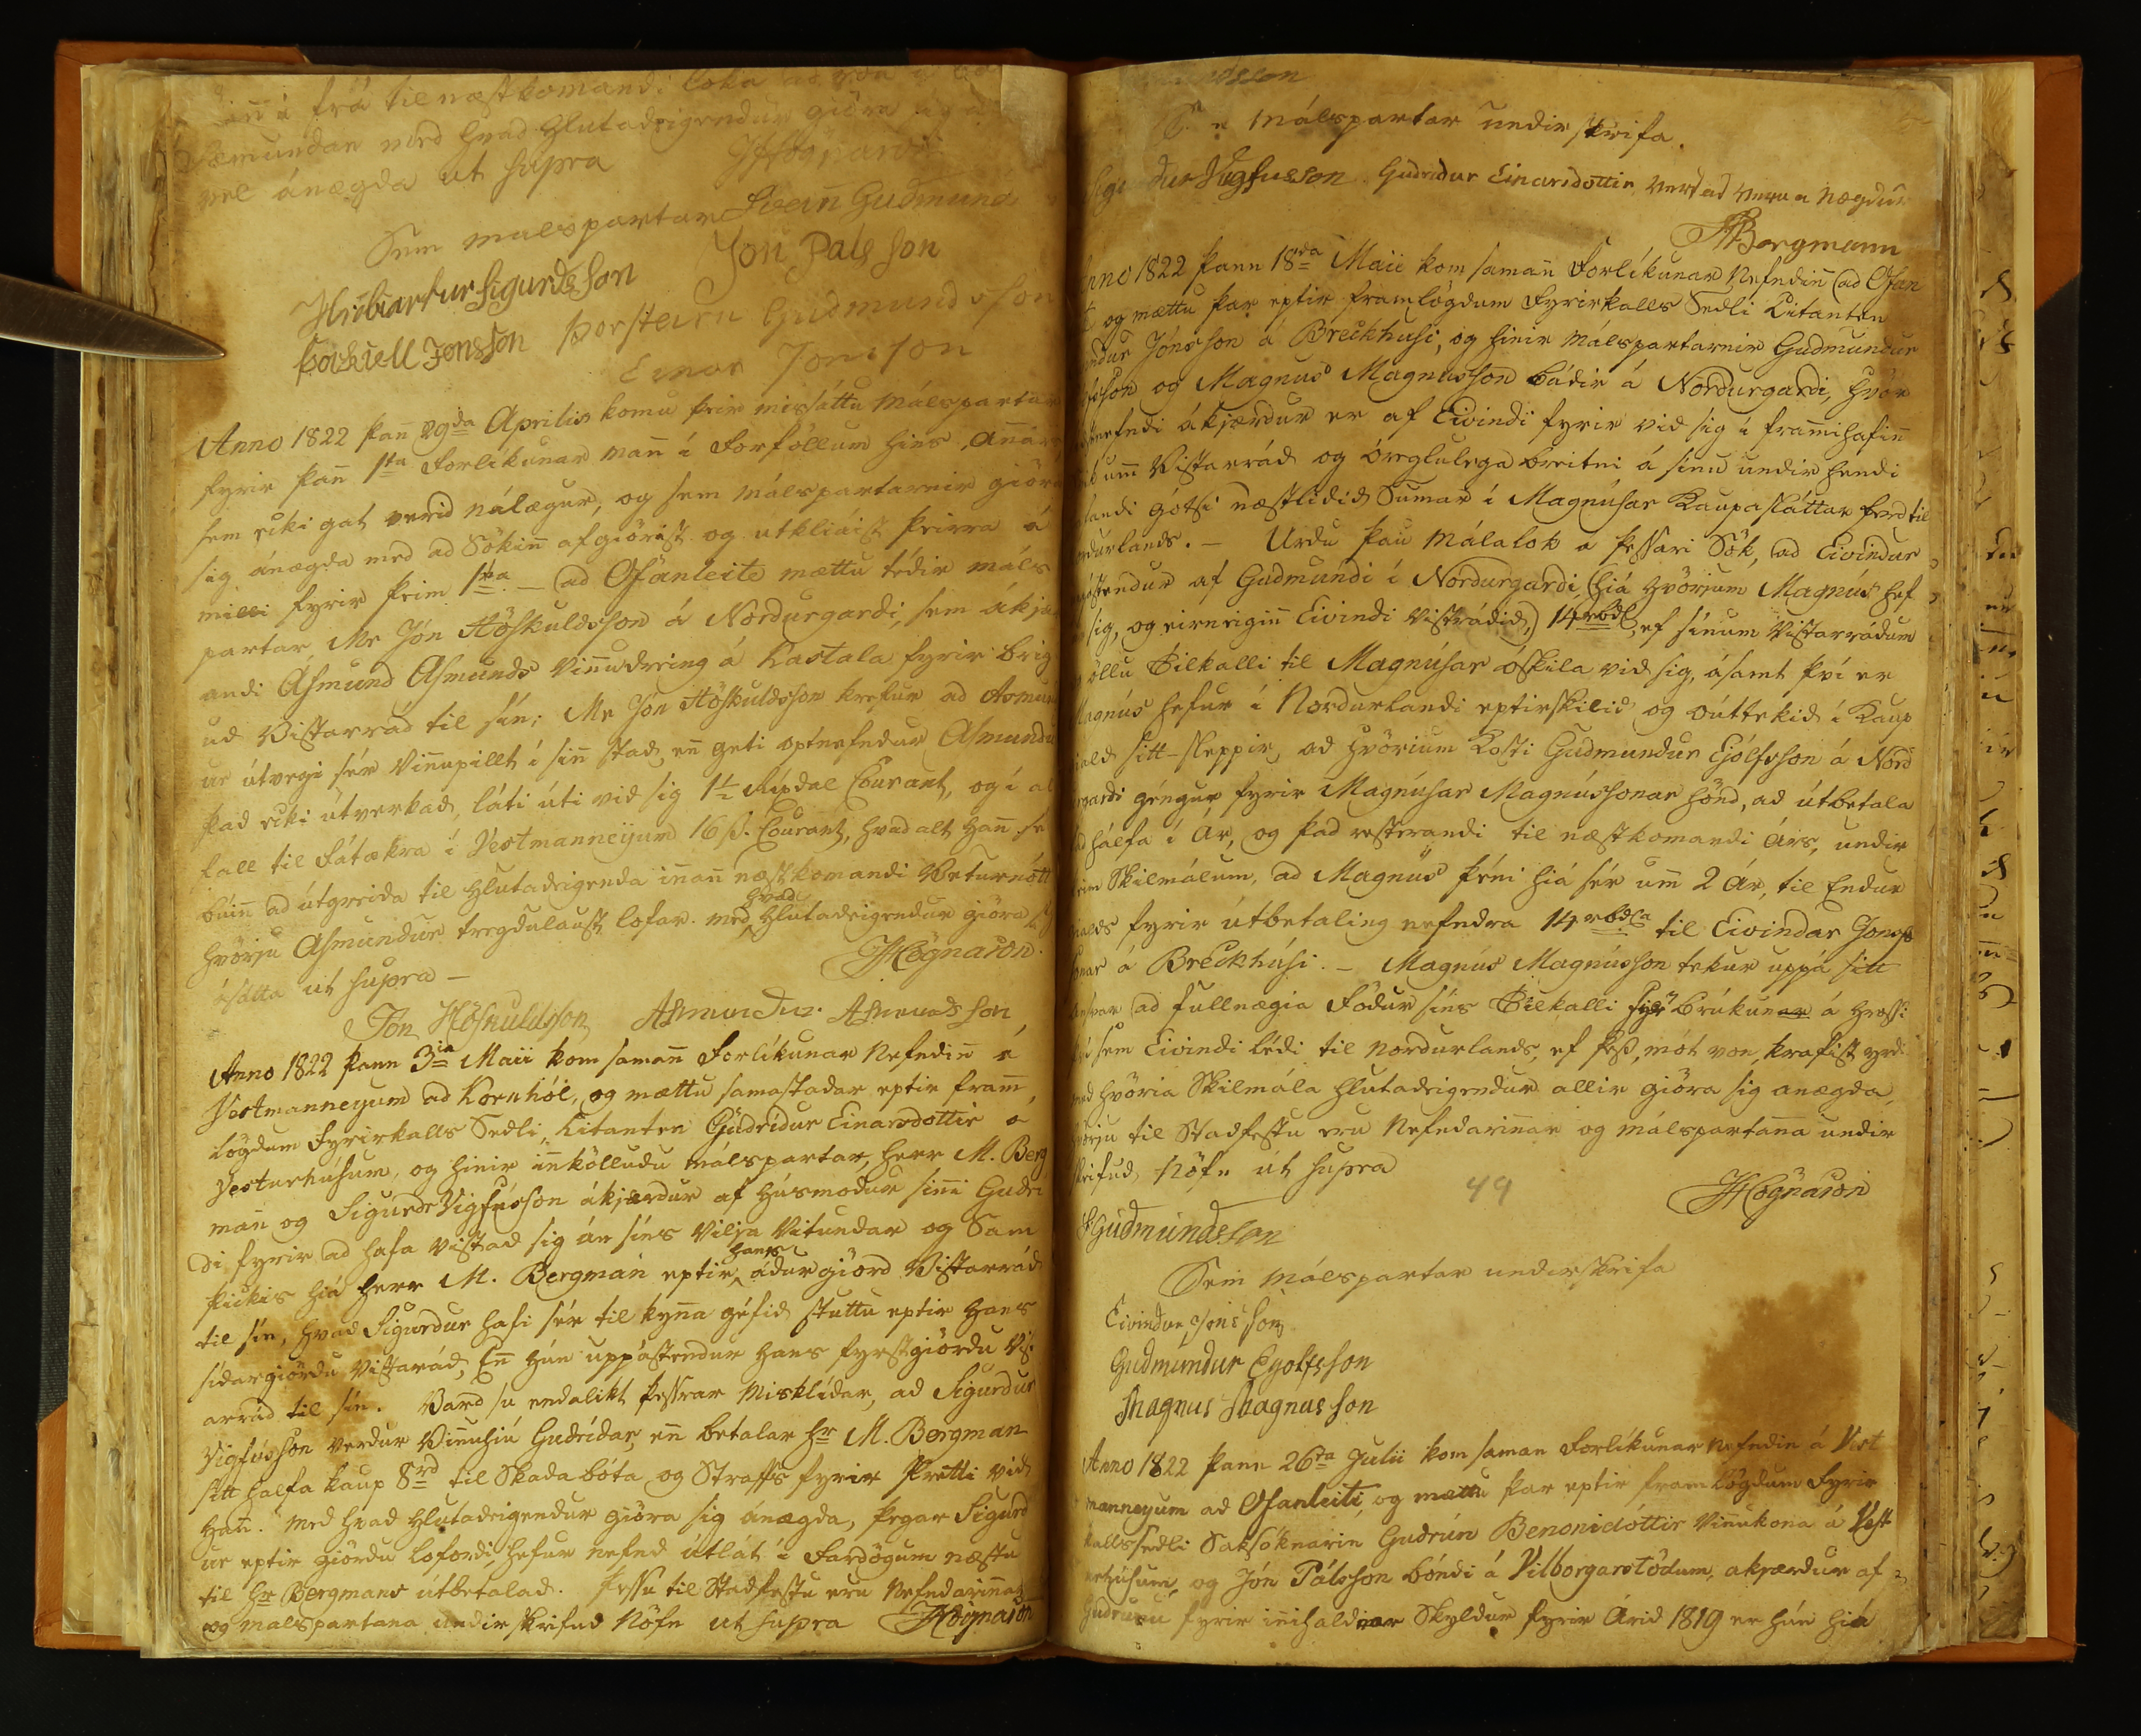 frá til næstkomandi loka
Sæmundar med hvad Hlutadeigendur giöra sig
vel ánægda ut supra JHögnason
Sem malspartar Svein Gudmunds
Jón Pálsson
Hróbiartur Sigurdsson
Þorkiell Jonsson Þorsteirn Gudmundsson
Einar Jonsson
Anno 1822 þan̄ 29da Aprilis komu þeir missáttu Málspartar
fyrir þan̄ 1sta Forlíkunar man̄ í Forföllum hins annars
sem ecki gat verid nálægur, og sem málspartarnir giöra
sig ánægda med ad Sökin̄ afgiörist og utkliáist þeirra á
milli fyrir þeim 1sta — ad Ofanleite mættu tédir máls
partar, Mr Jón Höskuldsson á Nordurgardi, sem ákjær
andi Asmund Asmunds Vin̄udreing á Kastala fyrir brig
ud Vistarrád til sín; Mr Jón Höskuldsson krefur ad Asmund
ur útvegi sér Vin̄upillt í sin̄ stad, en̄ geti optnefndur Asmundur
þad ecki útverkad, láti úti vid sig 1½ Rixdal Courant, og í al
fall til Fátækra í Vestmanneyum 16 ß. Courant, hvad alt han̄ se
búin̄ ad útgreida til Hlutadeigenda innan̄ næstkomandi Veturnótt
hvörju Asmundur tregdulaust lofar. med hvad Hlutadeigendur giöra sig
ásátta ut supra — JHögnason.
Jón Höskuldsson Asmundur Asmundsson
Anno 1822 þann 3ia Maii kom saman̄ Forlíkunar Nefndin̄ á
Vestmanneyum ad Kornhól, og mættu samastadar eptir fram̄
lögdum Fyrirkalls Sedli, Citanten Gudridur Einarsdottir á
Vesturhúsum, og hinir in̄kölludu málspartar, herr M. Berg
man̄ og Sigurdr Vigfússon ákjærdur af húsmódur sin̄i Gudri
di fyrir ad hafa vistad sig án síns Vilja Vitundar og Sam
þickis hiá herr M. Bergman eptir hans ádurgiörd Vistarrád
til sín, hvad Sigurdur hafi sér til kyn̄a géfid stuttu eptir hans
sídargiördu Vistarrád, En̄ hún uppástendur hans fyrstgiördu Vist
arrád til sín. Vard su endalikt þessrar Misklídar, ad Sigurdur
Vigfússon verdur Vin̄uhiú Gudrídar, en̄ betalar hr M. Bergman
sitt halfa kaup 8rd til Skadabóta og Straffs fyrir Pretti vid
han̄. med hvad Hlutadeigendur giöra sig ánægda, þegar Sigurd
ur eptir giördu lofordi, hefur nefnd útlát í Fardögum næstu
til hr Bergmans útbetalad. Þessu til Stadfestu eru Nefndarin̄ar
og malspartana undirskrifud Nöfn ut supra JHögnason
málspartar undirskrifa.
Vigfusson. Gudridur Einarsdottir
MBergmann
Anno 1822 þann 18da Maii kom saman̄ Forlíkunar Nefndin̄ ad Ofan
og mættu þar eptir framlögdum Fyrirkalls Sedli Citanten
Jónsson á Breckhusi, og hinir Málspartarnir Gudmundur
og Magnus Magnússon bádir á Nordurgardi, hvör
nefndi ákjærdur er af Eivindi fyrir vid sig í fram̄ihafin̄
um̄ Vistarrád og óreglulega breitni á sínu undir hendi
landi gótsi næstlidid Sumar í Magnúsar Kaupasláttar ferd til
Nordurlands. — Urdu þau Málalok a þessari Sök, ad Eivindur
uppástendur af Gudmundi í Nordurgardi, (hiá hvörjum Magnús hef
sig, og eirneigin̄ Eivindi Vistrádid,) 14 rbdl, ef sínum Vistarrádum
öllu Tilkalli til Magnúsar óskila vid sig, ásamt því er
Magnús hefur í Nordurlandi eptirskilid og óúttekid í Kaup
giald sitt — sleppir, ad hvörium Kosti Gudmundur Ejólfsson á Nord
urgardi géngur fyrir Magnúsar Magnússonar hönd, ad útbetala
hálfa í Ár, og þad resterandi til næstkomandi Árs, undir
þeim Skilmálum, ad Magnús þéni hiá sér um̄ 2 Ár, til Endur
gialds fyrir útbetaling nefndra 14 rbdla til Eivindar Jons
sonar á Breckhúsi. — Magnús Magnússon tekur uppá sitt
Ansvar ad fullnægia Födur síns Tilkalli fyrir brúkunar á hrossi
því sem Eivindi lédi til Nordurlands, ef þess, mót von, krafist yrdi.
med hvöria Skilmála hlutadeigendur allir giöra sig anægda,
hvörju til Stadfestu eru Nefndarin̄ar og málspartan̄a undir
skrifud Nöfn út supra
49
JHögnason
Gudmundsson
Sem málspartar underskrifa
Eivindur Jonsson
Gudmundur Eyolfsson
Magnus Magnússon
Anno 1822 þann 26ta Julii kom saman Forlíkunar Nefndin á Vest
manneyum ad Ofanleiti, og mættu þar eptir framlögdum Fyrir
kallssedli Saksóknarin Gudrún Benonidóttir vinnukona á Vest
urhúsum, og Jón Pálsson bóndi á Vilborgarstödum, akjærdur af
Gudrunu fyrir in̄ihaldnar Skyldur fyrir Árid 1819 er hún hiá